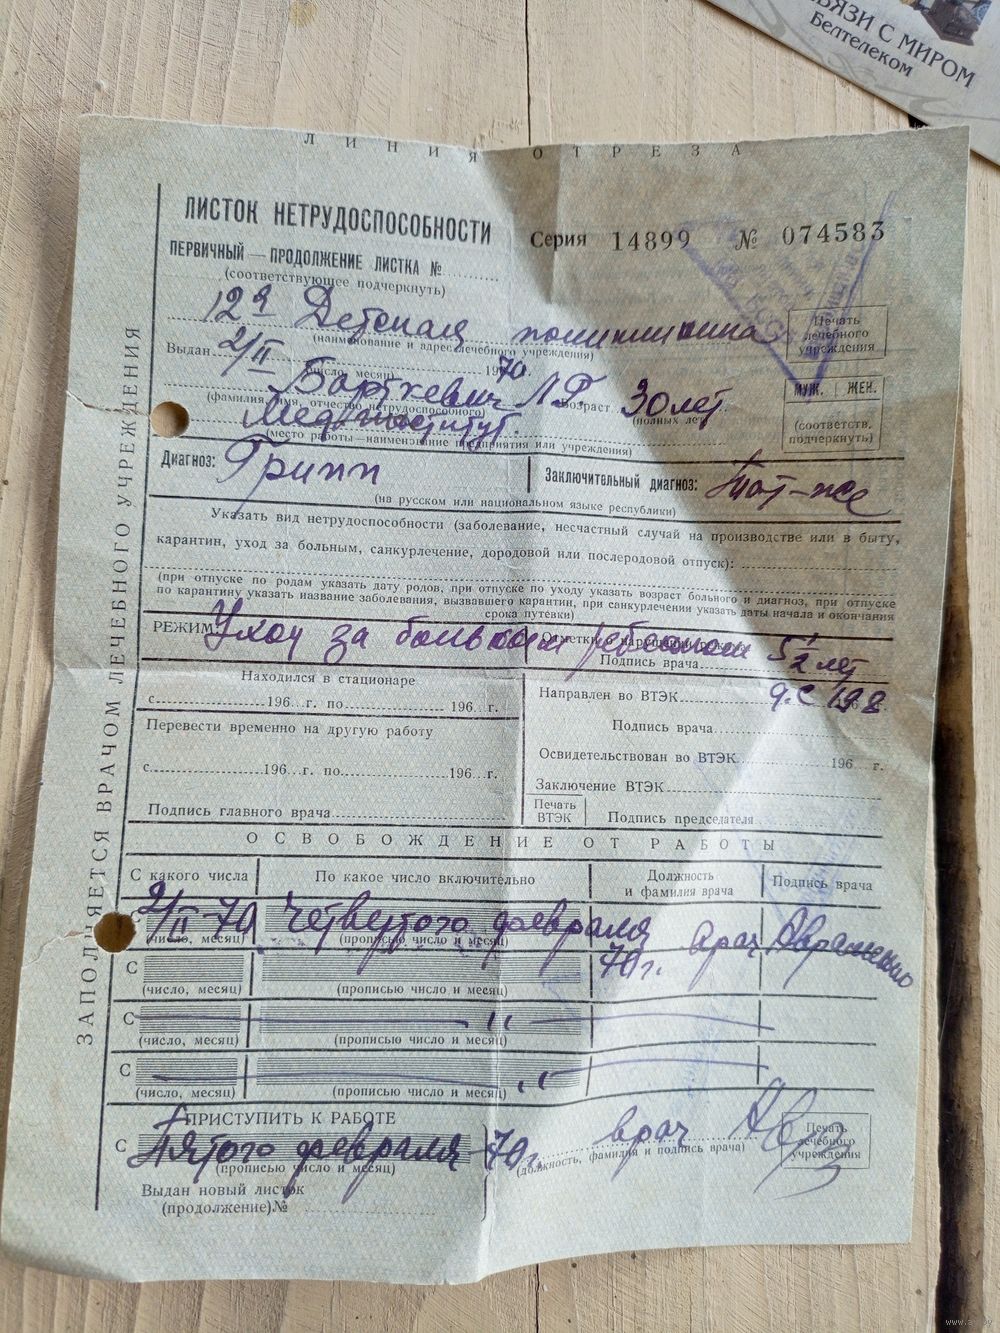 СВЯЗИ С МИРОМ
Белтелеком
ЛИНИЯ ОТРЕЗА
ЗАПОЛНЯЕТСЯ ВРАЧОМ ЛЕЧЕБНОГО УЧРЕЖДЕНИЯ
ЛИСТОК НЕТРУДОСПОСОБНОСТИ
Серия 14899 № 074583
ПЕРВИЧНЫЙ — ПРОДОЛЖЕНИЕ ЛИСТКА №
(соответствующее подчеркнуть)
12я Детская поликлиника
(наименование и адрес лечебного учреждения)
Печать лечебного учреждения
Выдан 2/II 1970
(число, месяц)
Барткевич Л Г возраст 30 лет
(фамилия, имя, отчество нетрудоспособного) (полных лет)
МУЖ. ЖЕН.
(соответств. подчеркнуть)
Мединститут.
(место работы—наименование предприятия или учреждения)
Диагноз: Грипп Заключительный диагноз: Тот-же
(на русском или национальном языке республики)
Указать вид нетрудоспособности (заболевание, несчастный случай на производстве или в быту,
карантин, уход за больным, санкурлечение, дородовой или послеродовой отпуск):
(при отпуске по родам указать дату родов, при отпуске по уходу указать возраст больного и диагноз, при отпуске
по карантину указать название заболевания, вызвавшего карантин, при санкурлечении указать даты начала и окончания
срока путевки)
РЕЖИМ: Уход за больным ребенком 5 1/2 лет
Отметки о нарушении режима
Подпись врача
Находился в стационаре
с 196 г. по 196 г.
Направлен во ВТЭК
Перевести временно на другую работу
Подпись врача
Освидетельствован во ВТЭК 196 г.
с 196 г. по 196 г.
Заключение ВТЭК
Подпись главного врача
Печать ВТЭК
Подпись председателя
ОСВОБОЖДЕНИЕ ОТ РАБОТЫ
С какого числа По какое число включительно Должность и фамилия врача Подпись врача
С 2/II-70 Четвертого февраля 70 г. врач Авраменко
(число, месяц) (прописью число и месяц)
С
(число, месяц) (прописью число и месяц)
С — " —
(число, месяц) (прописью число и месяц)
С — " —
(число, месяц) (прописью число и месяц)
ПРИСТУПИТЬ К РАБОТЕ
С Пятого февраля 70 г. врач
(прописью число и месяц) (должность, фамилия и подпись врача)
Печать лечебного учреждения
Выдан новый листок
(продолжение) №